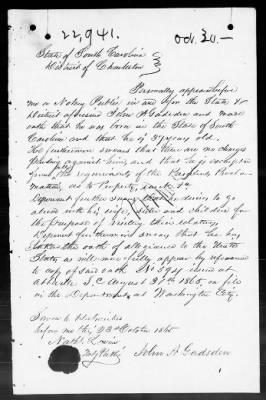 22,941. Oct 30.—
State of South Carolina
District of Charleston
Personally appeared before
me a Notary Public in and for the State &
District aforesaid John A Gadsden and made
oath that he was born in the State of South
Carolina and that he is 32 years old.
He furthermore swears that there are no charges
pending against him, and that he is exempt
from the requirements of the Presidents Procla-
mation, as to Property, rank &c
Deponent further swears that he desires to go
abroad with his wife, sister and children for
the purpose of visiting their relatives
Deponent furthermore swears that he has
taken the oath of allegiance to the United
States as will more fully appear by reference
to copy of said oath No 394 issued at
Abbeville S.C. August 31st 1865, on file
in the Department at Washington City.
Sworn to & subscribed
before me this 23d October 1865
Noty Public
John A. Gadsden